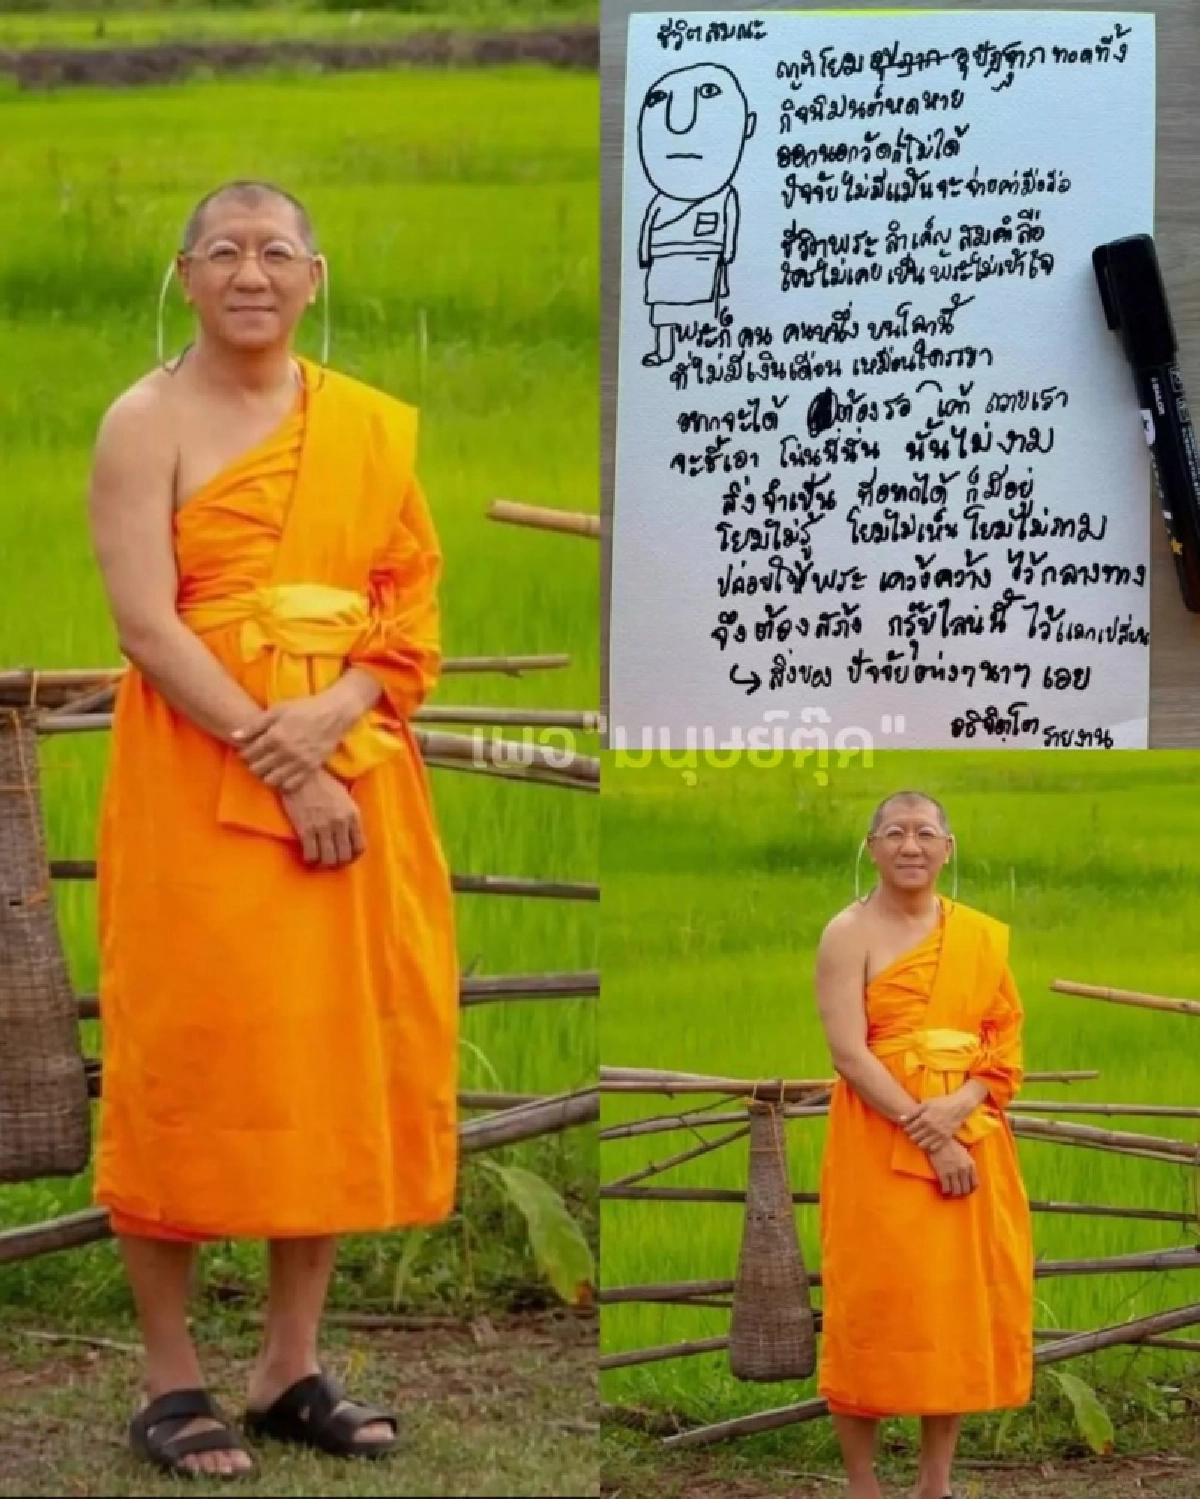 ชีวิตสมณะ
ญาติโยม อุปัฏฐาก ทอดทิ้ง
กิจนิมนต์หดหาย
ออกนอกวัดก็ไม่ได้
ปัจจัยไม่มีแม้นจะจ่ายค่ามือถือ
ชีวิตพระ สำคัญ สมคำลือ
ใครไม่เคยเป็นพระไม่เข้าใจ
พระก็คน คนหนึ่ง บนโลกนี้
ที่ไม่มีเงินเดือน เหมือนใครเขา
อยากจะได้ ต้องรอ เค้า ถวายเรา
จะชี้เอา โน่นนี่นั่น นั้นไม่งาม
สิ่งจำเป็น ที่อยากได้ ก็มีอยู่
โยมไม่รู้ โยมไม่เห็น โยมไม่ถาม
ปล่อยให้พระ เคว้งคว้าง ไว้กลางทาง
จึงต้องสร้าง กรุ๊ปไลน์นี้ ไว้แลกเปลี่ยน
↳ สิ่งของ ปัจจัยต่างๆนาๆ เอย
อธิจิตฺโต รายงาน
เพจ "มนุษย์ตุ๊ด"